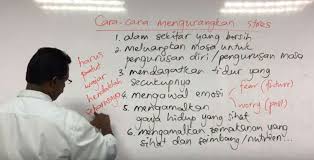 Cara-cara mengurangkan stres
1. alam sekitar yang bersih
2. meluangkan masa untuk
pengurusan diri / pengurusan masa
3. mendapatkan tidur yang
secukupnya
fear (future)
4. mengawal emosi
worry (past)
5. mengamalkan
gaya hidup yang sihat
6. mengamalkan pemakanan yang
sihat dan seimbang / nutrition...
harus
patut
wajar
hendaklah